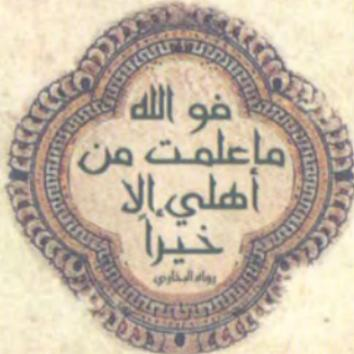 فو الله
ما علمت من
أهلي إلا
خيراً
رواه البخاري